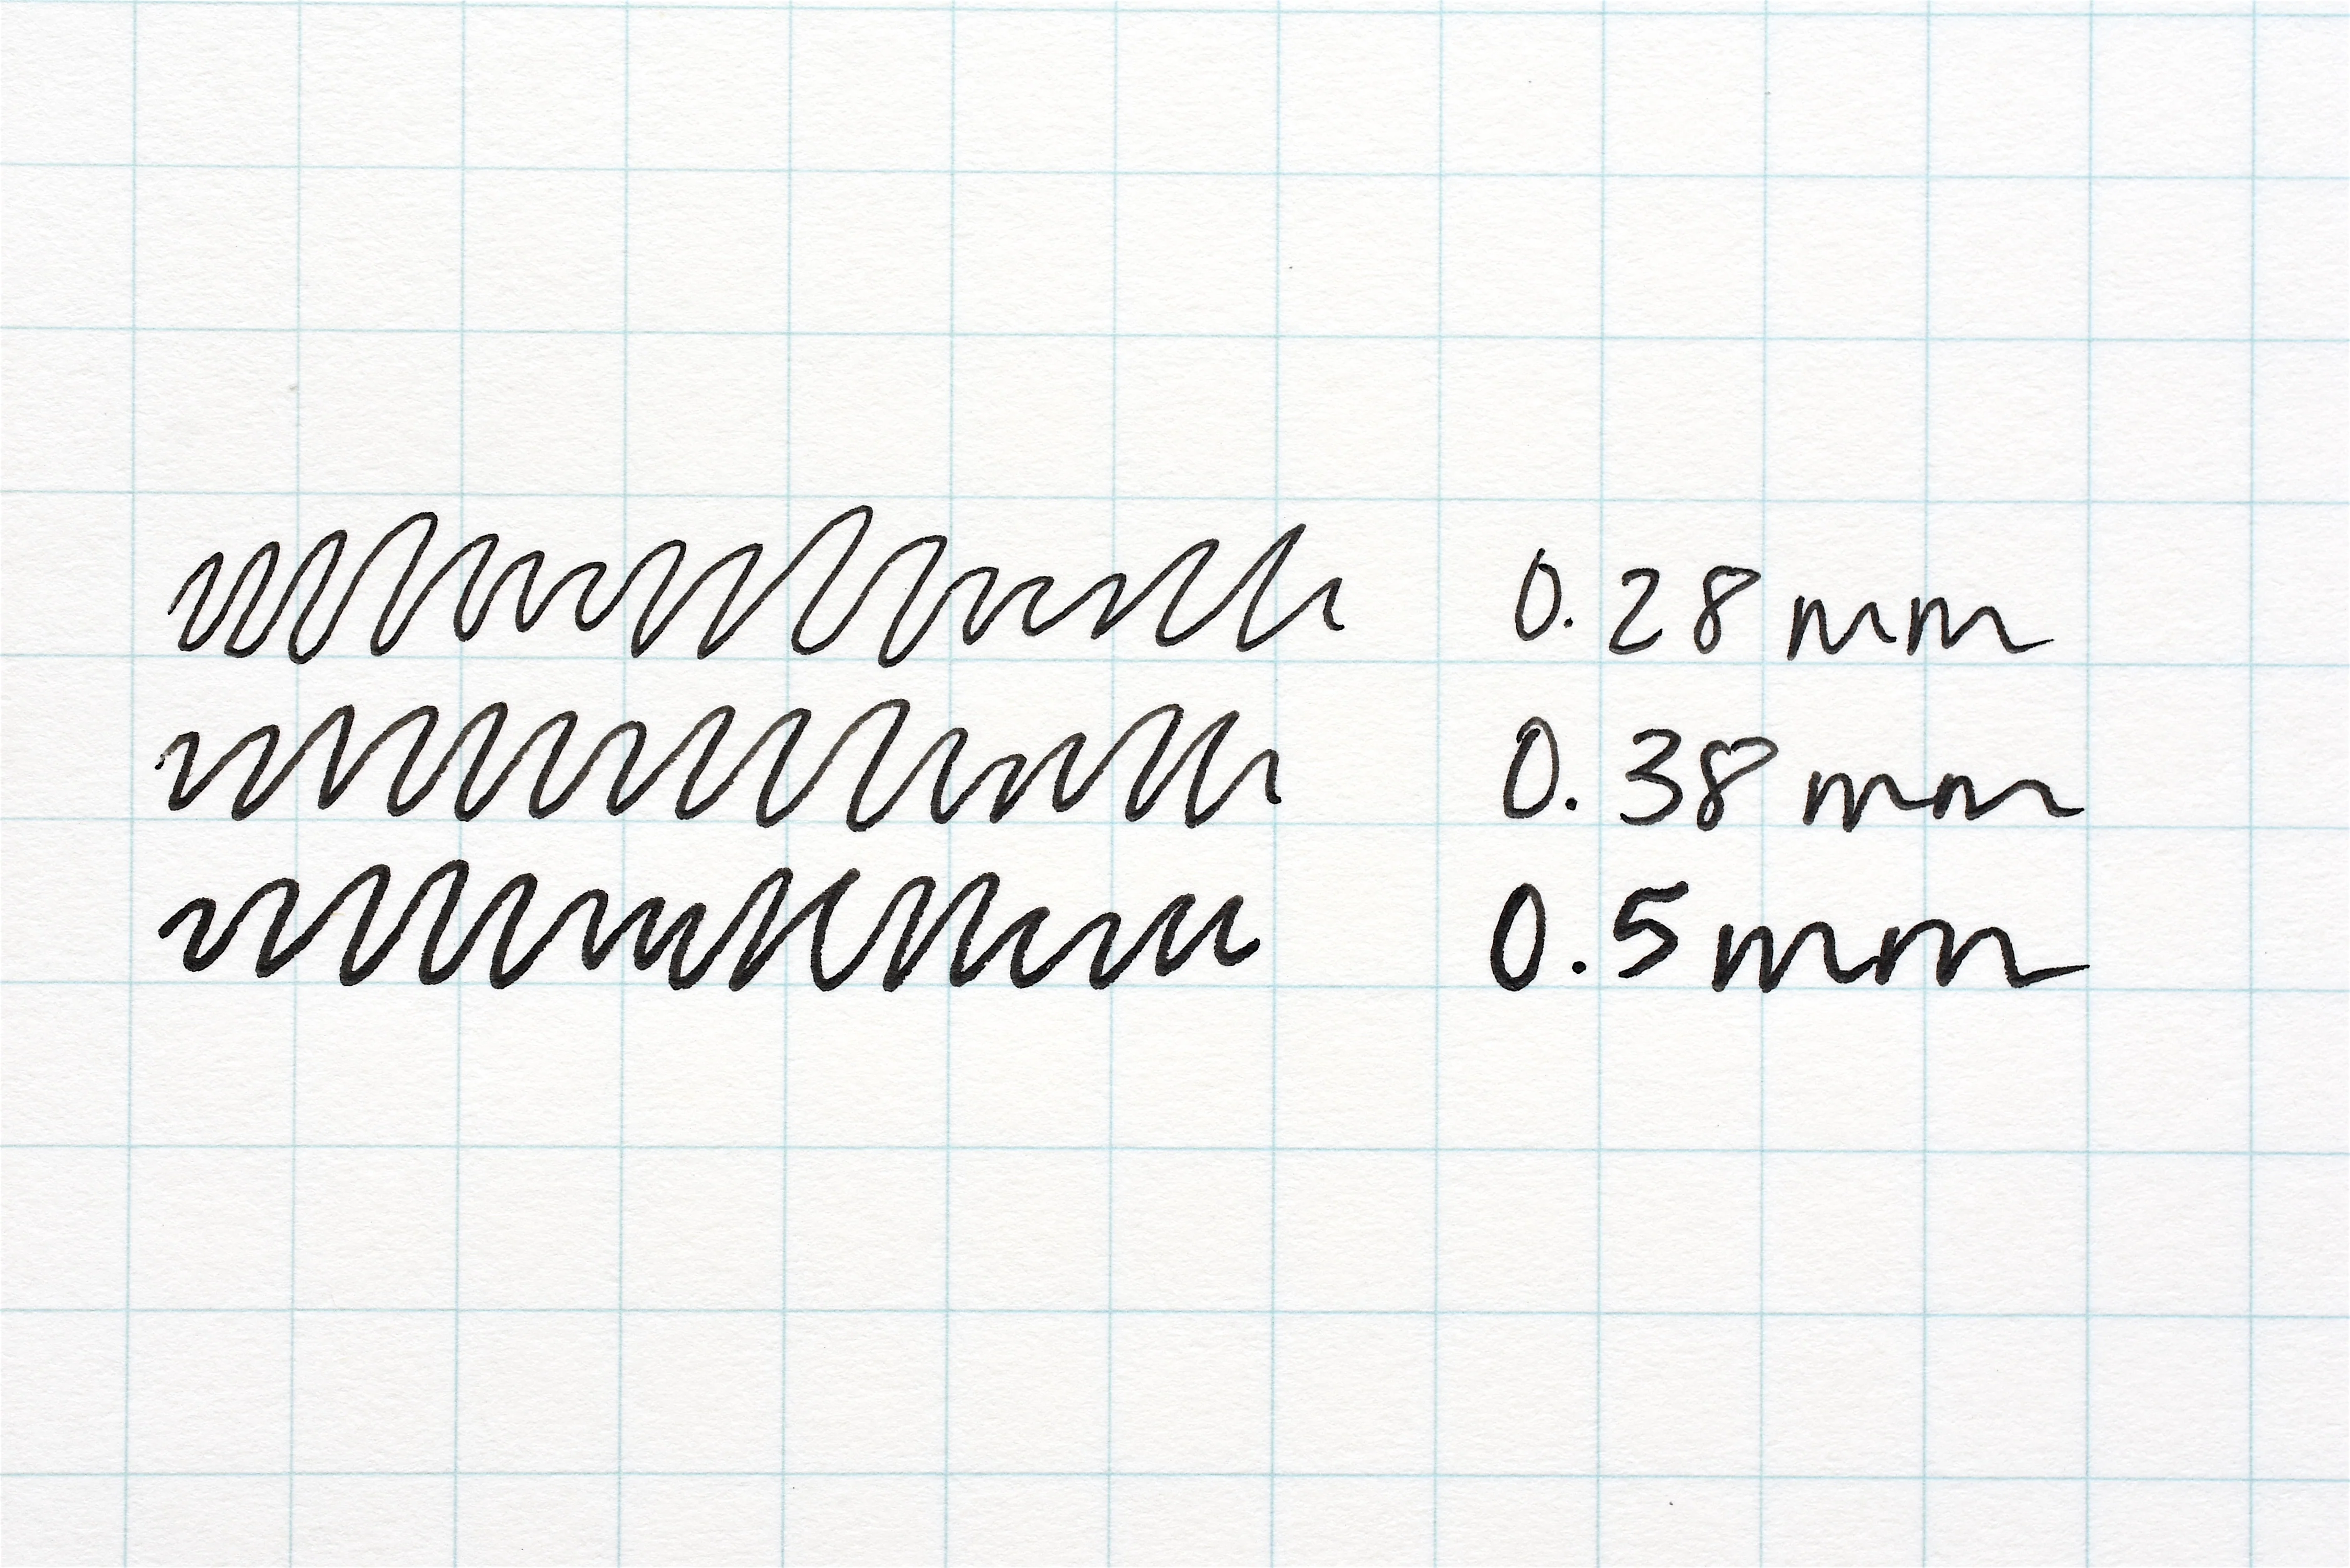 0.28mm
0.38mm
0.5mm